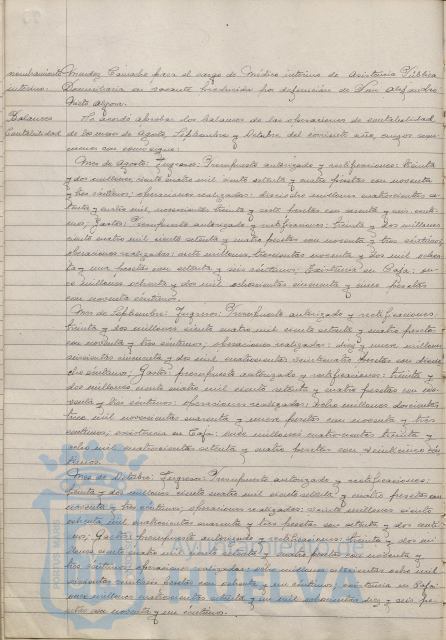 nombramiento Mendez Camacho para el cargo de Médico interino de Asistencia Pública
interino: Domiciliaria en vacante producida por defunción de Don Alejandro
Balances Se acordó aprobar los balances de las operaciones de contabilidad
Contabilidad de los meses de Agosto, Septiembre y Octubre del corriente año, cuyos
como sigue:
Mes de Agosto: Ingresos: Presupuesto autorizado y rectificaciones: treinta
y dos millones ciento cuatro mil ciento setenta y cuatro pesetas con noventa
y tres céntimos; operaciones realizadas: dieciocho millones cuatrocientos
y cuatro mil novecientas treinta y siete pesetas con
Gastos: Presupuesto autorizado y rectificaciones: treinta y dos millones
ciento cuatro mil ciento setenta y cuatro pesetas con noventa y tres céntimos;
operaciones realizadas: siete millones trescientas noventa y dos mil
y una pesetas con setenta y seis céntimos; Existencia en Caja:
millones ochenta y dos mil ochocientas cincuenta y cinco pesetas
con noventa céntimos.
Mes de Septiembre: Ingresos: Presupuesto autorizado y rectificaciones:
treinta y dos millones ciento cuatro mil ciento setenta y cuatro pesetas
con noventa y tres céntimos; operaciones realizadas: diez y nueve millones
seiscientas cincuenta y dos mil cuatrocientas veinticuatro pesetas con
céntimos; Gastos: presupuesto autorizado y rectificaciones: treinta y
dos millones ciento cuatro mil ciento setenta y cuatro pesetas con
noventa y tres céntimos: operaciones realizadas: ocho millones doscientas
trece mil novecientas cuarenta y nueve pesetas con noventa y tres
céntimos; existencia en Caja: once millones cuatrocientas treinta y
ocho mil cuatrocientas setenta y cuatro pesetas con veinticinco
Mes de Octubre: Ingresos: Presupuesto autorizado y rectificaciones:
treinta y dos millones ciento cuatro mil ciento setenta y cuatro pesetas con
noventa y tres céntimos; operaciones realizadas: veinte millones ciento
ochenta mil cuatrocientas noventa y tres pesetas con setenta y dos
Gastos: presupuesto autorizado y rectificaciones: treinta y dos
ciento cuatro mil ciento setenta y cuatro pesetas con noventa y
tres céntimos; operaciones realizadas: ocho millones setecientas ocho mil
pesetas con ochenta y un céntimos; existencia en Caja:
once millones cuatrocientas setenta y un mil ochocientas diez y seis
con noventa y un céntimos.